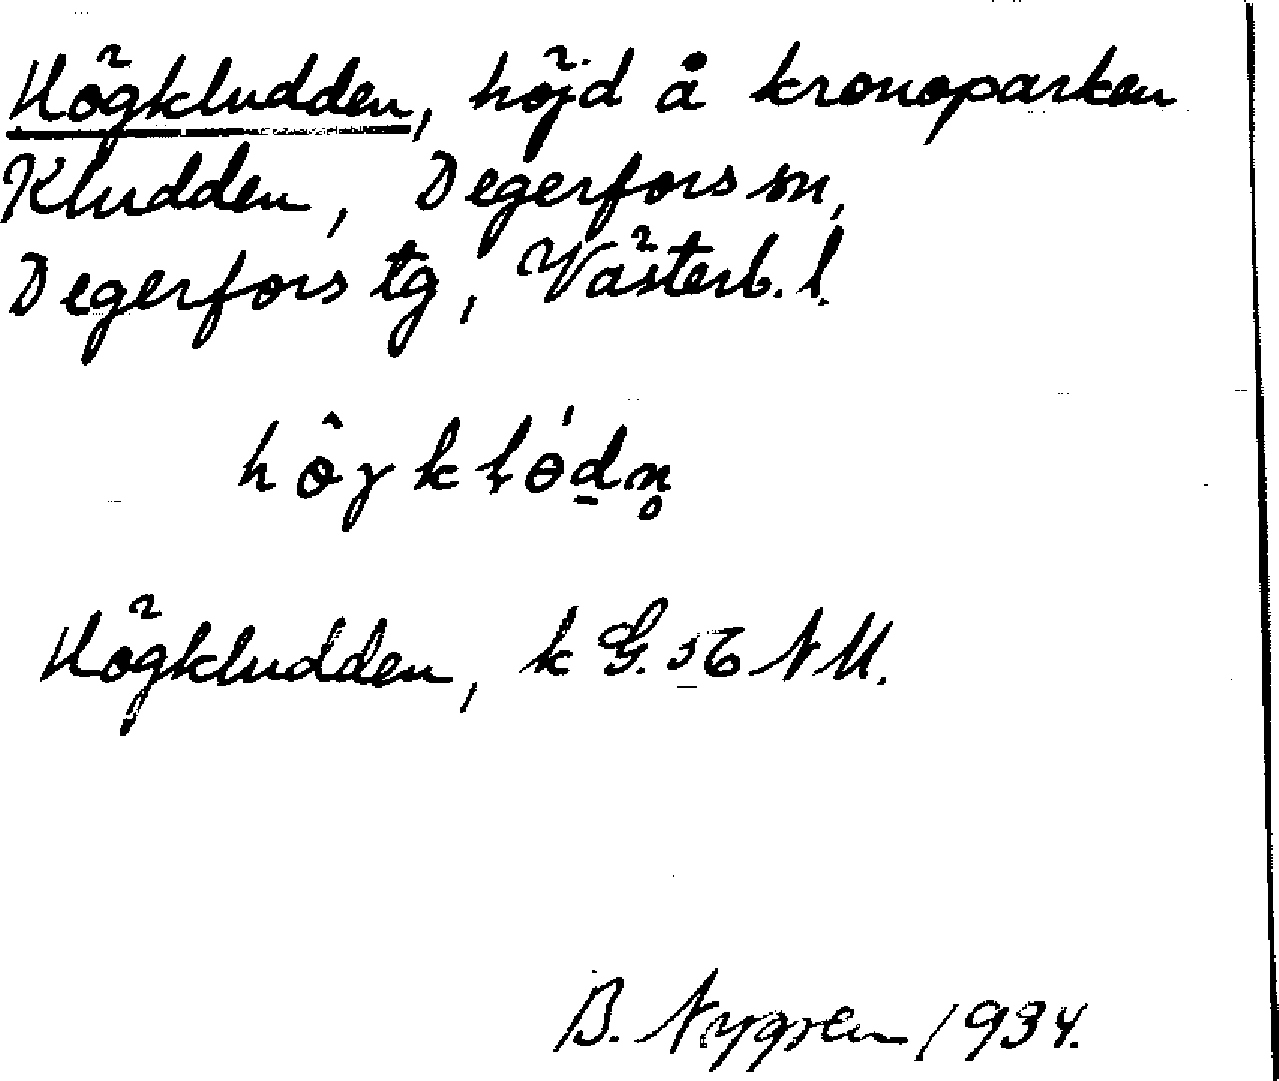 Högkludden, höjd å kronoparken
Kludden, Degerfors sn,
Degerfors tg, Västerb. l.
Högkludden, k G.
B. Nygren 1934.